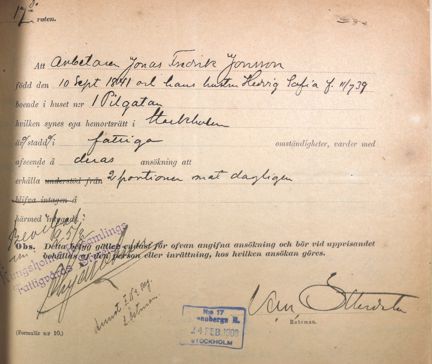 17de
roten.
Att Arbetaren Jonas Fredrik Jonsson
född den 10 Sept 1841 och hans hustru Hedvig Sofia f. 11/7 39
boende i huset n:r 1 Pilgatan
hvilken synes ega hemortsrätt i Stockholm
är stadd i fattiga omständigheter, varder med
afseende å deras ansökning att
erhålla understöd från 2 portioner mat dagligen
blifva intagen å
härmed intygadt.
Obs. Detta betyg gäller endast för ofvan angifna ansökning och bör vid uppvisandet
behållas af den person eller inrättning, hos hvilken ansökan göres.
Kungsholms Församlings
Fattigvårds
No 17
24 FEB. 1909
STOCKHOLM
Roteman.
(Formulär n:r 10.)